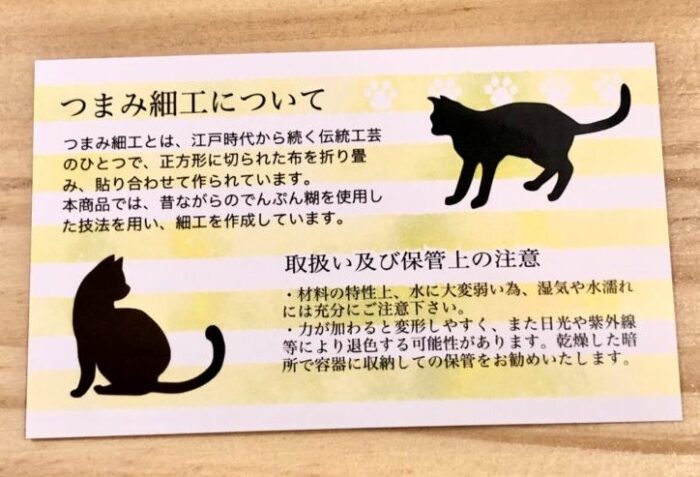 つまみ細工について
つまみ細工とは、江戸時代から続く伝統工芸
のひとつで、正方形に切られた布を折り畳
み、貼り合わせて作られています。
本商品では、昔ながらのでんぷん糊を使用し
た技法を用い、細工を作成しています。
取扱い及び保管上の注意
・材料の特性上、水に大変弱い為、湿気や水濡れ
には充分にご注意下さい。
・力が加わると変形しやすく、また日光や紫外線
等により退色する可能性があります。乾燥した暗
所で容器に収納しての保管をお勧めいたします。